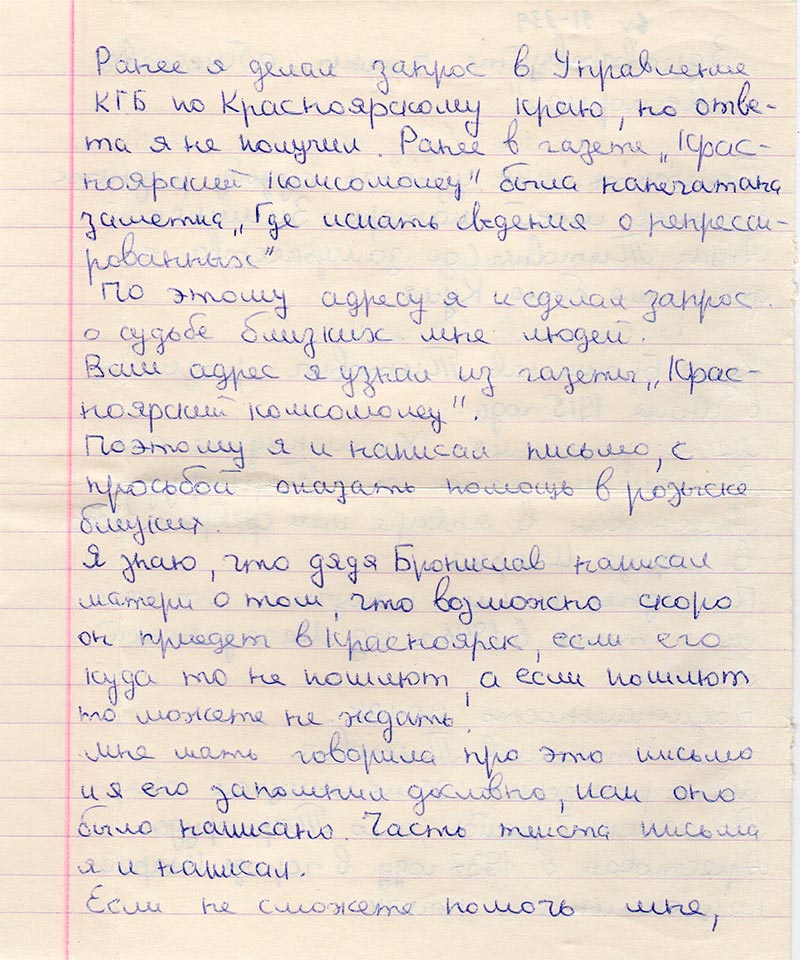 Ранее я делал запрос в Управление
КГБ по Красноярскому краю, но отве-
та я не получил. Ранее в газете „Крас-
ноярский комсомолец" была напечатана
заметка „Где искать сведения о репресси-
рованных"
По этому адресу я и сделал запрос
о судьбе близких мне людей.
Ваш адрес я узнал из газеты „Крас-
ноярский комсомолец".
Поэтому я и написал письмо, с
просьбой оказать помощь в розыске
близких.
Я знаю, что дядя Бронислав написал
матери о том, что возможно скоро
он приедет в Красноярск, если его
куда то не пошлют, а если пошлют
то можете не ждать.
Мне мать говорила про это письмо
и я его запомнил дословно, как оно
было написано. Часть текста письма
я и написал.
Если не сможете помочь мне,